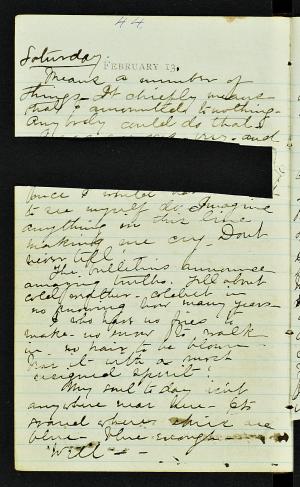 44
Saturday.
FEBRUARY 13.
Means a number of
things. It chiefly means
that I amounted to nothing.
Anybody could do that.
and
Once I
to see myself do. Imagine
anything in this line
making me cry. Don't
never tell.
The bulletins announce
amazing truths. All about
cold weather. coldest in
no knowing how many years
I who have no fires to
make no snow to walk
in no hair to be blown
bear it with a most
resigned spirit!
My soul to-day isn't
anywhere near here. It's
round where skies are
blue. Blue enough
Well - -